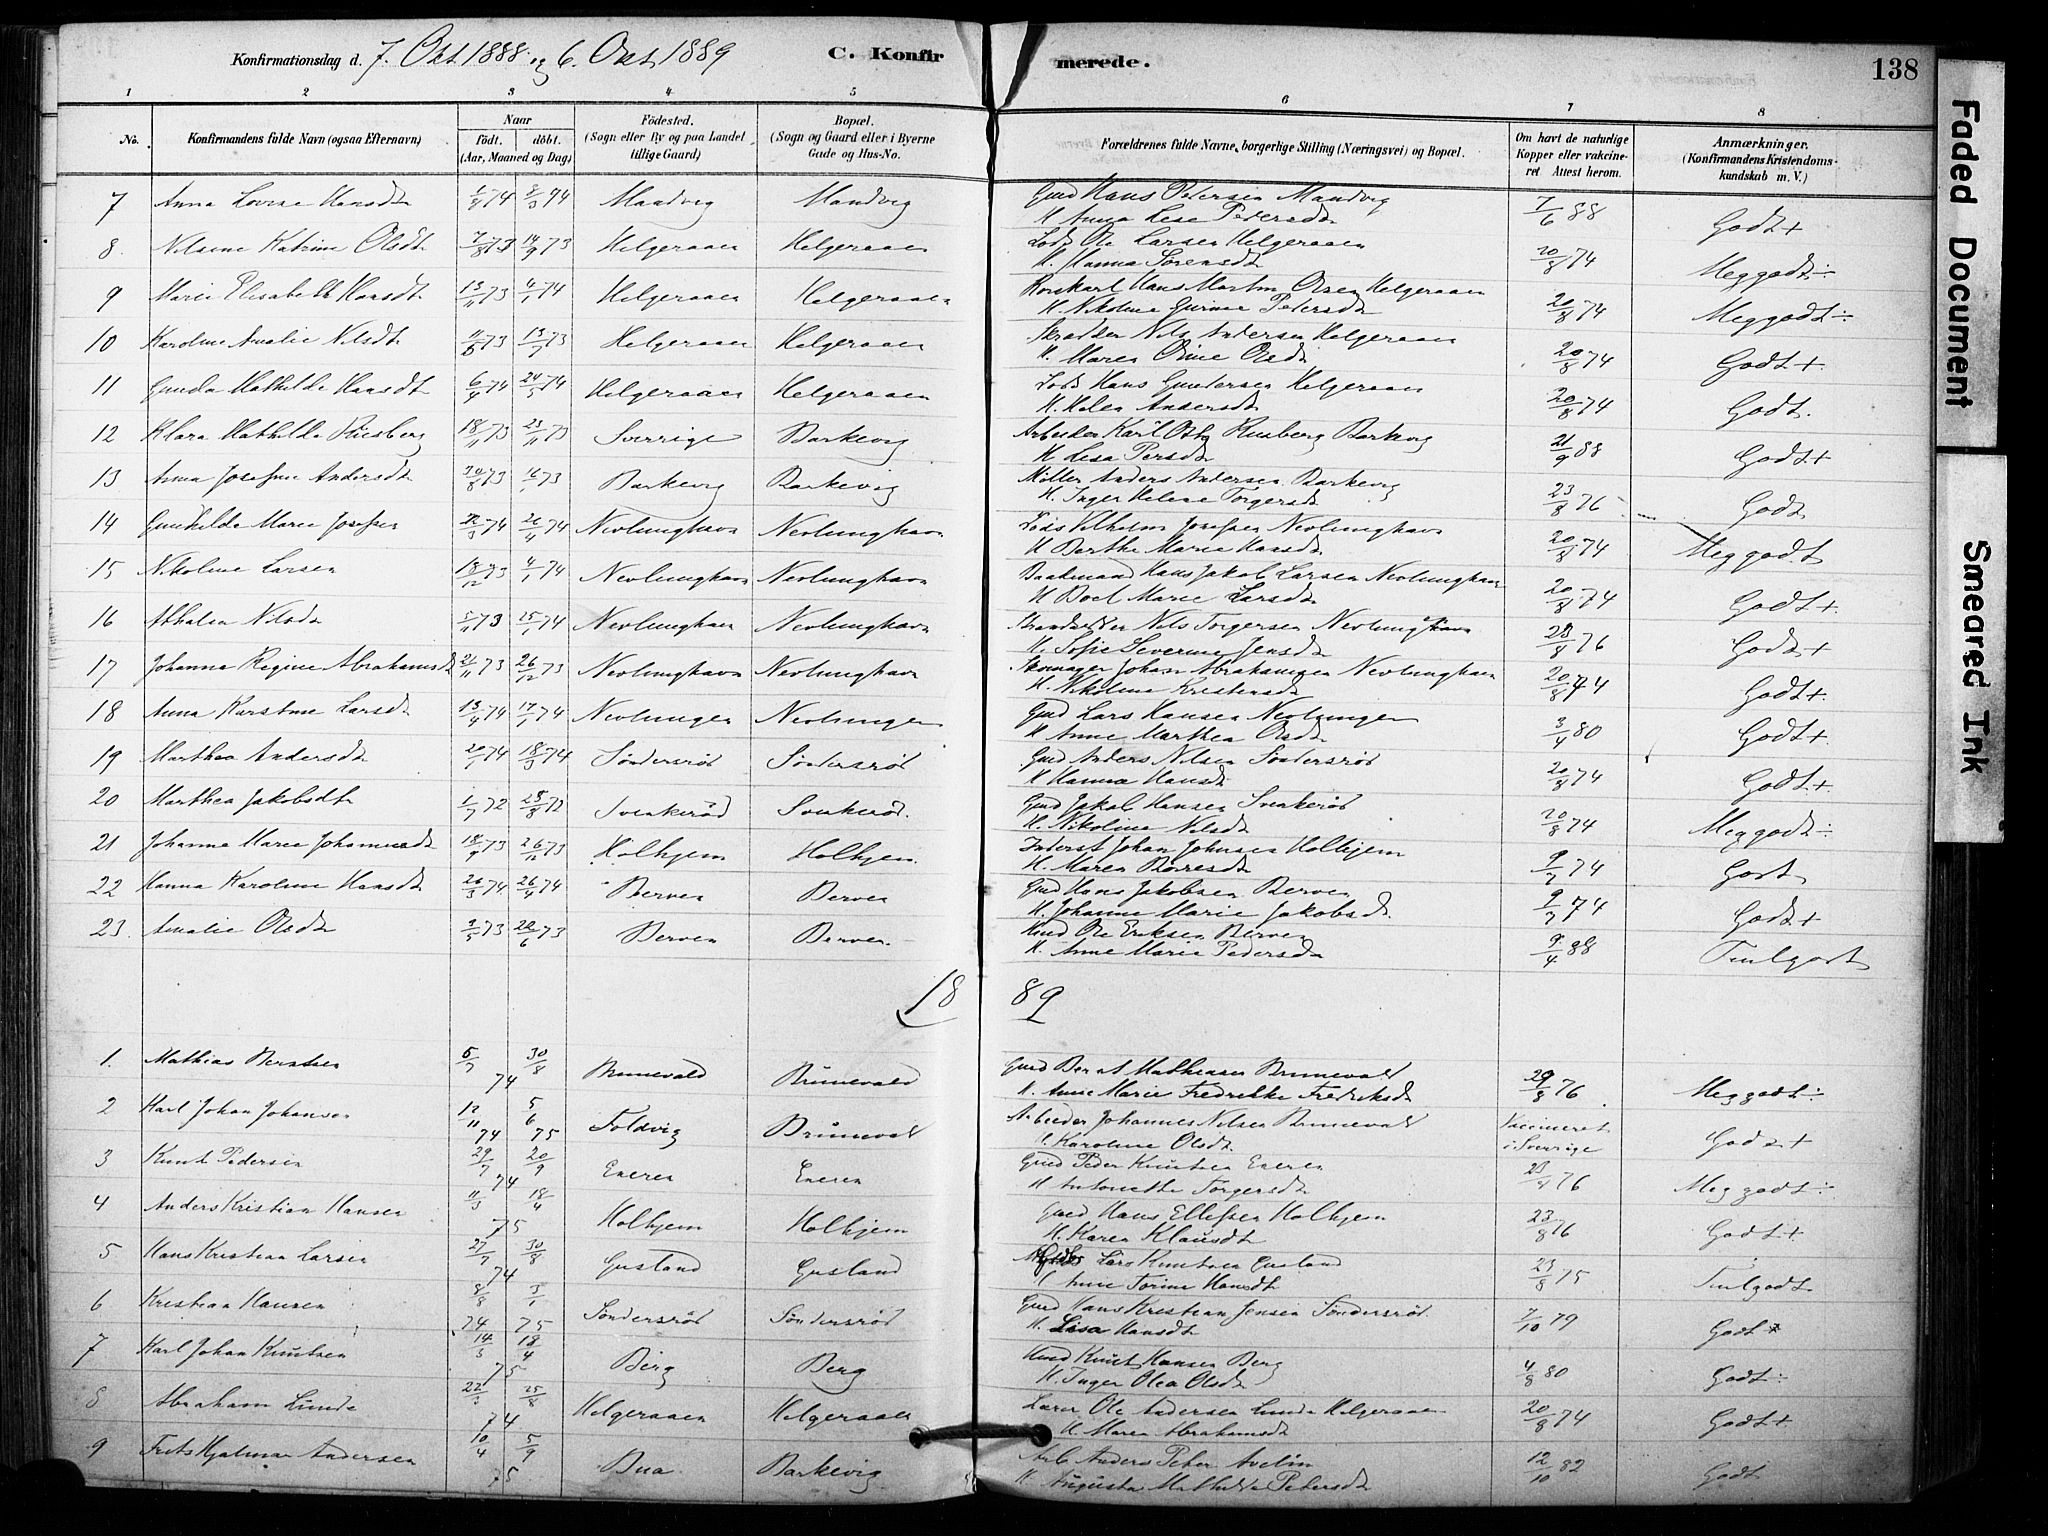 Konfirmationsdag d. 7. Okt 1888 og 6. Okt 1889 C. Konfirmerede. 138
1 2 3 4 5 6 7 8
No. Konfirmandens fulde Navn (ogsaa Efternavn) Naar Födt. döbt. (Aar, Maaned og Dag) Födested. (Sogn eller By og paa Landet tillige Gaard) Bopæl. (Sogn og Gaard eller i Byerne Gade og Hus-No. Forældrenes fulde Navne, borgerlige Stilling (Næringsvei) og Bopæl. Om havt de naturlige Kopper eller vakcineret Attest herom. Anmærkninger. (Konfirmandens Kristendomskundskab m. V.)
7 Anna Lovise Hansdt 74 8/3 74 Mandvig Mandvig Gmd Hans Petersen Mandvig 7/6 88 Godt+
H. Anna Lese Pedersdt
8 Nilsene Katrine Olsdt 7/8 73 14/9 73 Helgeraaen Helgeraaen Lods Ole Larsen Helgeraaen 20/8 74 Meg godt ÷
H. Hanna Sörensdt
9 Marie Elisabeth Hansdt 13/11 73 4/1 74 Helgeraaen Helgeraaen Hans Martin Olsen Helgeraaen 20/8 74 Meg godt ÷
H. Nikoline Gurine Petersdt
10 Karoline Amalie Nilsdt 11/6 73 13/7 73 Helgeraaen Helgeraaen Skrædder Nils Andersen Helgeraaen 20/8 74 Godt+
H. Maren Oline Olsdt
11 Gunda Mathilde Hansdt 6/4 74 24/5 74 Helgeraaen Helgeraaen Lods Hans Gundersen Helgeraaen 20/8 74 Godt.
H. Helen Andersdt
12 Klara Mathilda Rusberg 18/11 73 23/11 73 Sverrige Barkevig Arbeider Karl Rusberg Barkevig 21/9 88 Godt+
H Lesa Persdt
13 Anna Josefine Andersdt 30/8 73 73 Barkevig Barkevig Möller Anders Andersen Barkevig 23/8 76 Godt
H. Inger Helene Torgersdt
14 Gunhilde Marie Josefsen 74 26/4 74 Nevlunghavn Nevlunghavn Lods Vilhelm Josefsen Nevlunghavn 20/8 74 Meg godt
H Berthe Marie Hansdt
15 Nikoline Larsen 18/12 73 4/1 74 Nevlunghavn Nevlunghavn Baadsmand Hans Jakob Larsen Nevlunghavn 20/8 74 Godt+
H Boel Marie Larsdt
16 Athalea Nilsdt 5/11 73 25/1 74 Nevlunghavn Nevlunghavn Nils Torgersen Nevlunghavn 23/8 76 Godt+
H. Sofie Severine Jensdt
17 Johanna Regine Abrahamsdt 2/11 73 26/12 73 Nevlunghavn Nevlunghavn Skomager Johan Abrahamsen Nevlunghavn 20/8 74 Godt+
H. Nikoline Kristensdt
18 Anna Karstine Larsdt 13/4 74 74 Nevlungen Nevlungen Gmd Lars Hansen Nevlungen 3/4 80 Godt+
H Anne Marthea Olsdt
19 Marthea Andersdt 20/1 74 18/3 74 Söndersröd Söndersröd Gmd Anders Nilsen Söndersröd 20/8 74 Godt+
H Hanna Hansdt
20 Marthea Jakobsdt 1/7 72 28/8 72 Svenkeröd Svenkeröd. Gmd Jakob Hansen Svenkeröd 20/8 74 Meg godt ÷
H. Nikoline Nilsdt
21 Johanna Marie Johannesdt 18/9 73 26/12 73 Holhjem Holhjem Inderst Johan Johnsen Holhjem 9/7 74 Godt
H. Maren Börresdt
22 Hanna Karoline Hansdt 26/3 74 26/4 74 Berven Berven Gmd Hans Jakobsen Berven 9/7 74 Godt+
H. Johanne Marie Jakobsdt.
23. Amalie Olsdt 9/5 73 22/6 73 Berven Berven Hmd Ole Eriksen Berven 9/4 88 Temlgodt
H. Anne Marie Pedersdt
1889
1. Mathias Berntsen 5/7 30/8 74 Brunevald Brunevald Gmd Bernt Mathiasen Brunevald 29/8 76 Meg godt ÷
H. Anne Marie Fredrikke Fredriksdt
2 Karl Johan Johansen 12/11 74 5/6 75 Foldvig Brunevald Arbeider Johannes Nilsen Brunevald Vaccineret i Sverrige Godt+
H. Karoline Olsdt
3 Knut Pedersen 29/7 20/9 74 Eneren Eneren Gmd Peder Knutsen Eneren 23/8 76 Meg godt ÷
H Antonette Torgersdt
4 Anders Kristian Hansen 11/3 18/4 75 Holhjem Holhjem Gmd Hans Ellefsen Holhjem 23/8 76 Godt+
H. Karen Klausdt
5 Hans Kristian Larsen 27/7 30/8 74 Gusland Gusland Lars Knutsen Gusland 23/8 75 Temlgodt
H Anne Torine Hansdt
6 Kristian Hansen 8/8 74 3/1 75 Söndersröd Söndersröd Gmd Hans Kristian Jensen Söndersröd. 7/10 79 Godt
H. Lisa Hansdt
7 Karl Johan Knutsen 14/3 18/4 75 Berg Berg Hmd Knut Hansen Berg 4/8 80 Godt ÷
H. Inger Olea Olsdt
8 Abraham Lunde 22/3 25/8 74 Helgeraaen Helgeraaen Lærer Ole Andersen Lunde Helgeraaen 20/8 74 Godt+
H Maren Abrahamsdt
9 Frits Hjalmar Andersen 10/4 5/9 75 Bua Barkevig Arb Anders Peter Avelin 12/10 82 Godt
H. Augusta Mathilde Petersdt
Faded Document
Smeared Ink